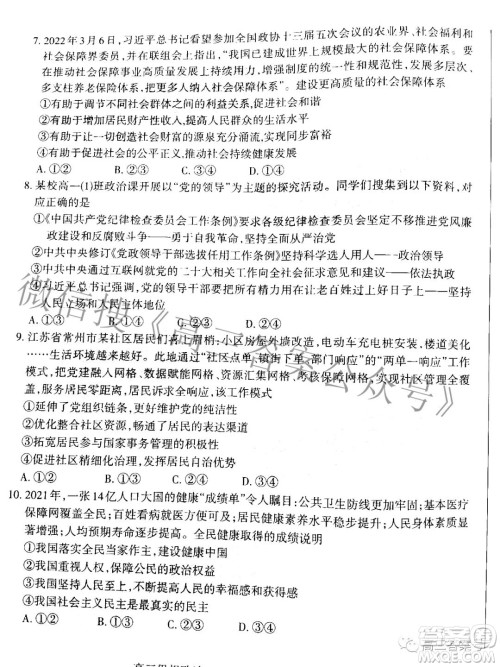 7. 2022年3月6日,习近平总书记看望参加全国政协十三届五次会议的农业界、社会福利和
社会保障界委员,并在联组会上指出,“我国已建成世界上规模最大的社会保障体系。要
在推动社会保障事业高质量发展上持续用力,增强制度的统一性和规范性,发展多层次、
多支柱养老保险体系,把更多人纳入社会保障体系”。建设更高质量的社会保障体系
①有助于调节不同社会群体之间的利益关系,促进社会公平
②有助于增加居民财产性收入,提高人民的生活水平
③有助于创造社会财富的源泉充分涌流,实现同步富裕
④有助于促进社会和谐,推动社会持续健康发展
A. ①② B. ①④ C. ②③ D. ③④
8. 某校高一(1)班政治课开展以“党的领导”为主题的探究活动。同学们搜集到以下资料,对
应正确的是
①《中国共产党纪律检查委员会工作条例》要求各级纪律检查委员会推进党风廉
政建设和反腐败斗争——勇于自我革命,坚持全面从严治党
②中共中央修订《党政领导干部选拔任用工作条例》——坚持科学选人用人
③中共中央通过互联网就党的二十大相关工作向全社会征求意见和建议——依法执政
④习近平总书记强调,党的领导干部要把工作的着力点放在让老百姓过好日子上——坚持
人民立场和人民主体地位
A. ①② B. ①④ C. ②③ D. ③④
9. 江苏省常州市某社区居民们喜上眉梢:小区房屋外墙改造,电动车充电桩安装,楼道美化
……生活环境越来越好。此地通过“社区点单、镇街下单、部门响应”的“两单一响应”工作
模式,把党建融入网格、数据赋能网格、资源汇集网格、考核保障网格,实现社区管理服务
横到边、纵到底、全覆盖,居民诉求全响应。该工作模式
①延伸了党组织链条,实现了党的自我革命
②优化整合社区资源,畅通了居民的表达渠道
③拓宽居民参与国家事务管理的途径与方式
④促进社区网格化治理,提升了居民的幸福感
A. ①② B. ①③ C. ②④ D. ③④
10. 2021年,一张14亿人口大国的健康“成绩单”令人瞩目:公共卫生防线更加牢固;基本医疗
保障网覆盖全民;百姓看病就医更方便、可及;居民健康素养水平稳步提升;人均预期寿
命、人均预期寿命稳步提升……全民健康取得的成绩说明
①我国坚持全民当家作主,建设健康中国
②我国重视人权,积极保障公民的政治权利
③有利于增强人民的幸福感和获得感
④我国社会主义民主具有真实性
A. ①② B. ①③ C. ②④ D. ③④
微信搜《高三答案公众号》